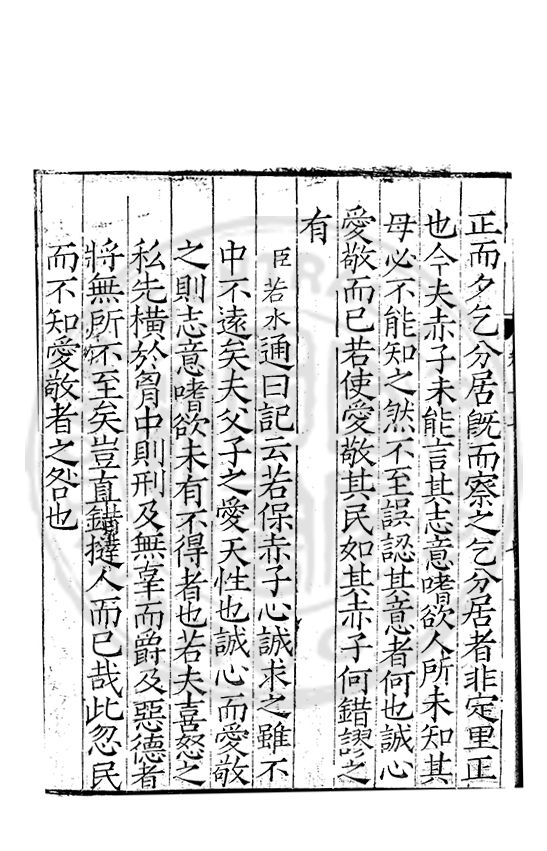 正而夕乞分居旣而察之乞分居者非定里正
也今夫赤子未能言其志意嗜欲人所未知其
母必不能知之然不至誤認其意者何也誠心
愛敬而已若使愛敬其民如其赤子何錯謬之
有
臣若水通曰記云若保赤子心誠求之雖不
中不遠矣夫父子之愛天性也誠心而愛敬
之則志意嗜欲未有不得者也若夫喜怒之
私先橫於胷中則刑及無辜而爵及惡德者
將無所不至矣豈直錯撻人而已哉此忽民
而不知愛敬者之咎也